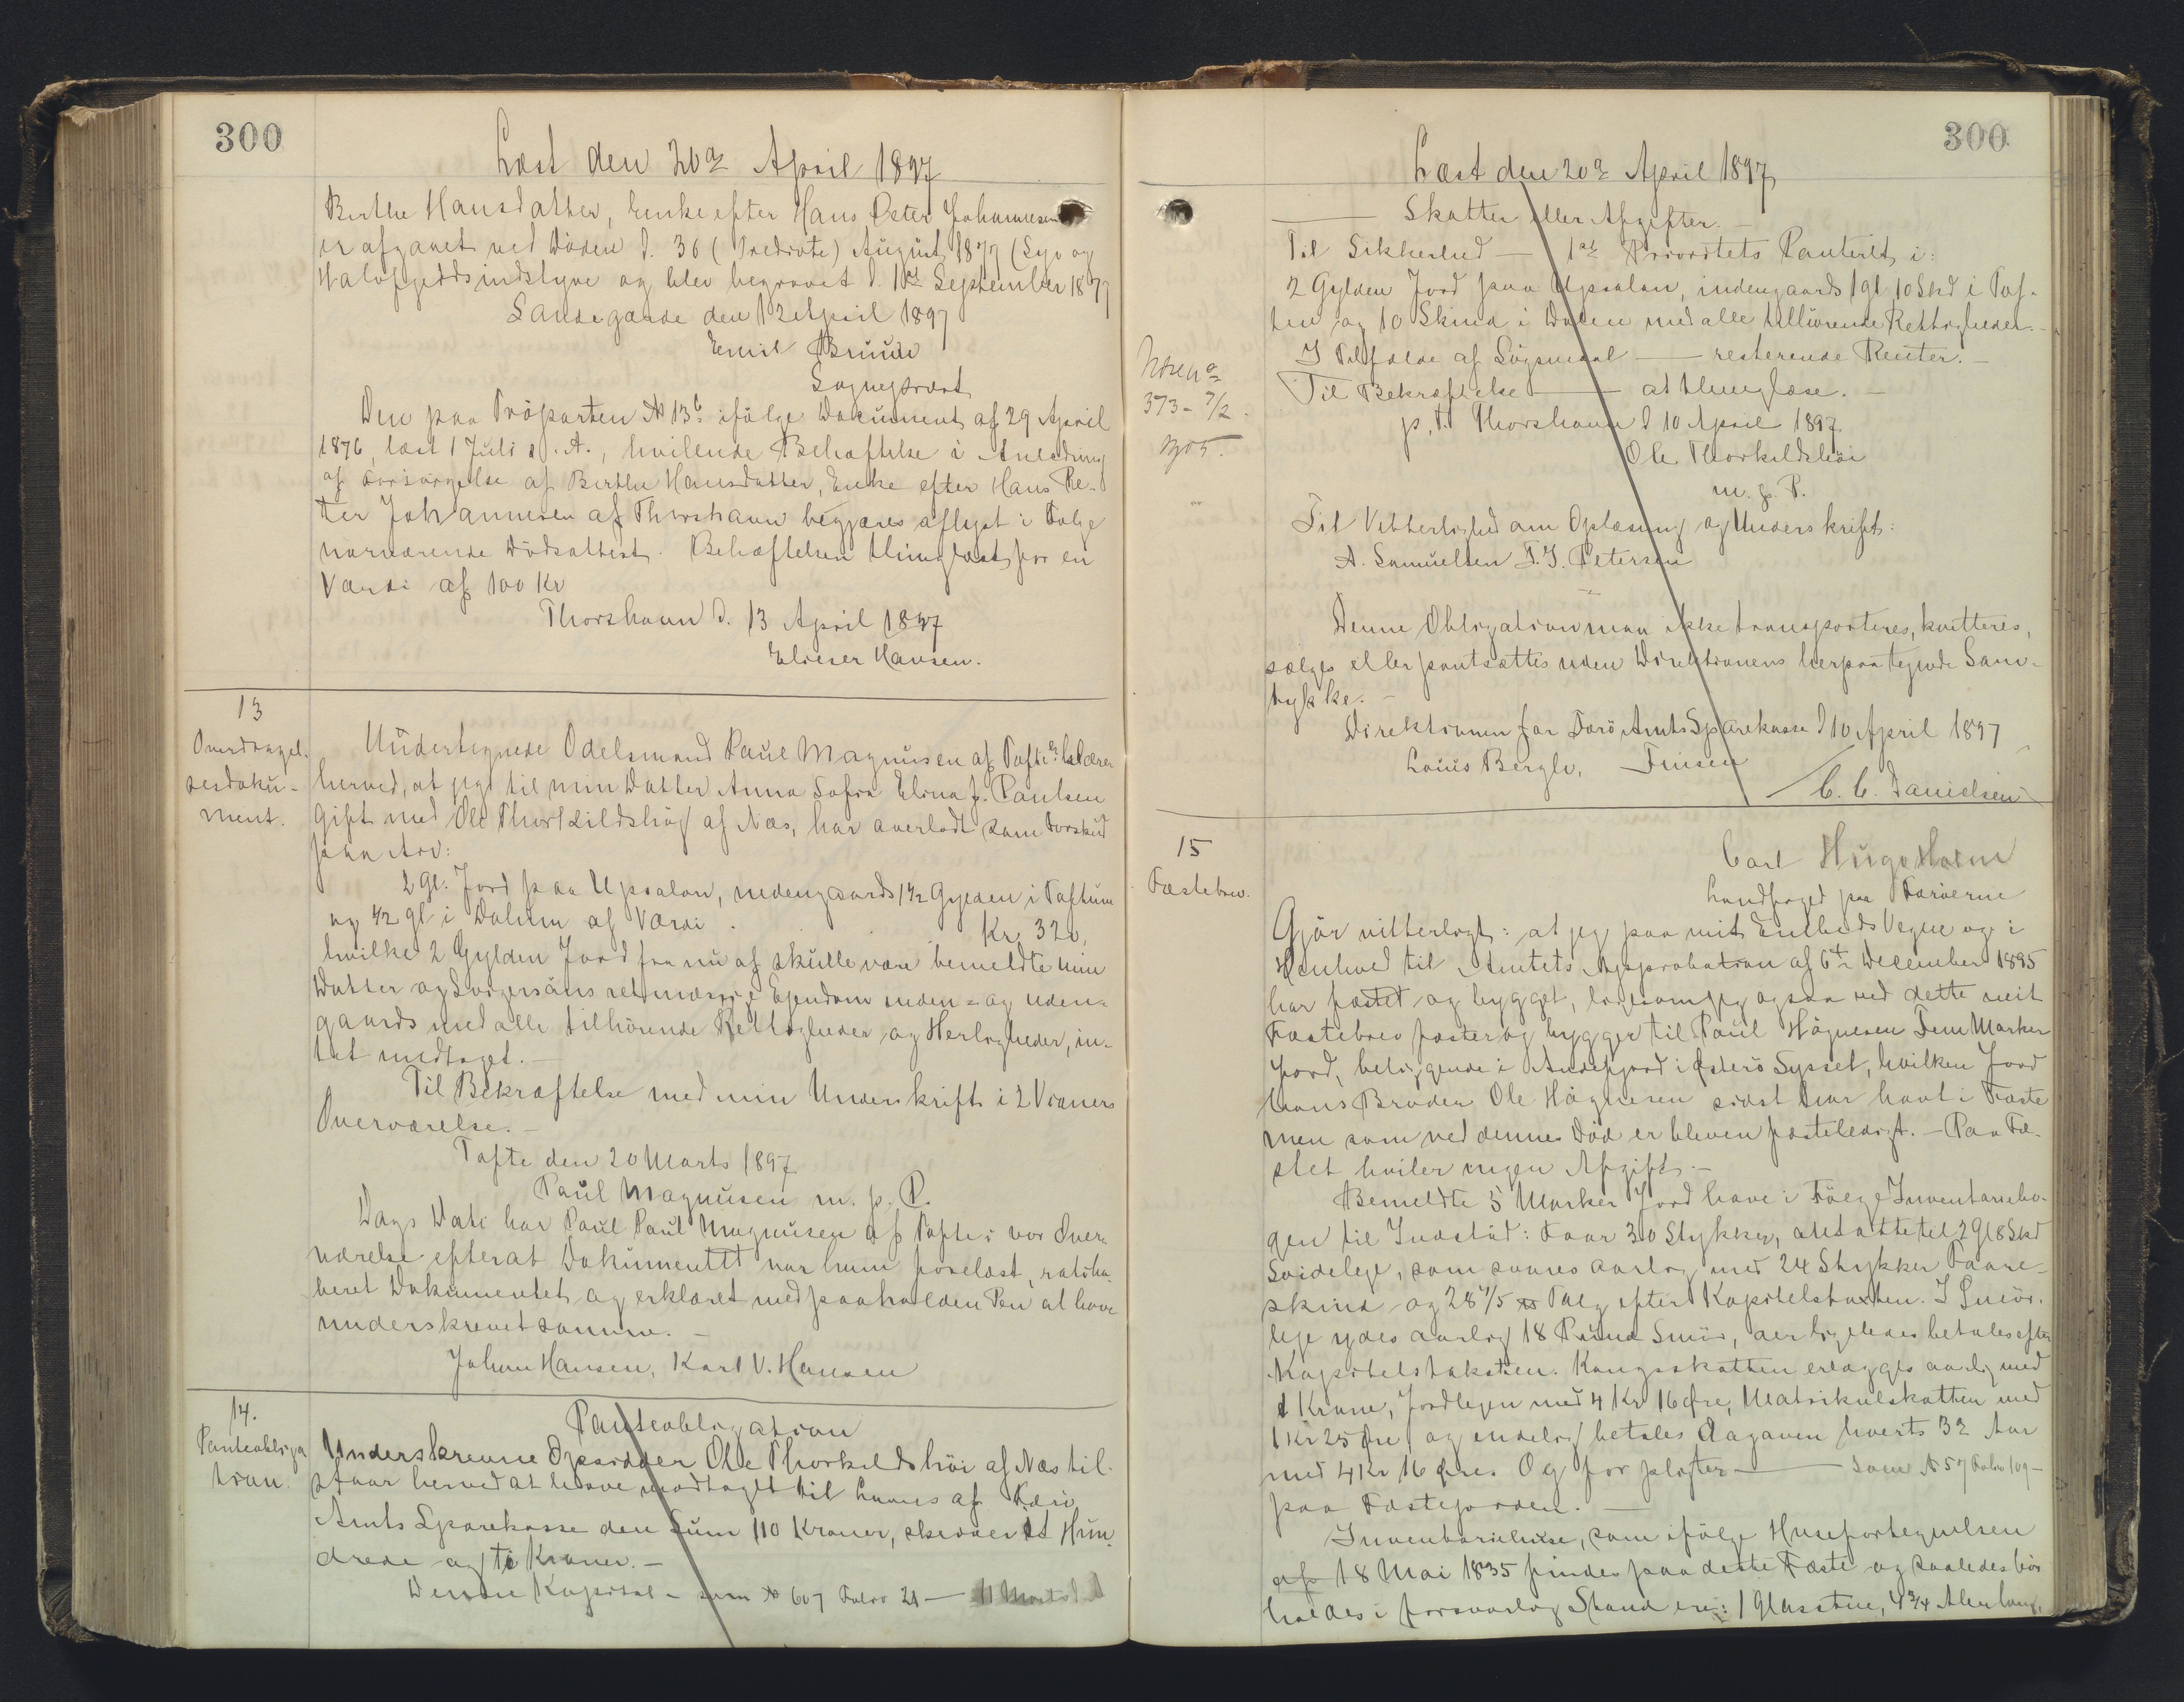 300
Læst den 20de April 1897
Birthe Hansdatter, Enke efter Hans Peter Johannesen
er afgaaet ved Døden d. 30 (Tredivte) August 1877 (Syv og
Halvfjeddsindstyve og blev begravet d. 10de September 1877
Sandegærde den 12 April 1897
Emil Bruun
Sognepræst
Den paa Tróparten № 13b ifölge Dokument af 29 April
1876, læst 1 Juli s. A., hvilende Behæftelse i Anledning
af Forsörgelse af Birthe Hansdatter, Enke efter Hans Pe-
ter Johannesen af Thorshavn begjæres aflyst i Følge
nærværende Dödsattest. Behæftelsen thinglæst for en
Værdi af 100 Kr
Thorshavn d. 13 April 1897
Elieser Hansen.
13
Overdragel-
sesdoku-
ment.
Undertegnede Odelsmand Paul Magnusen af Tofte erklærer
herved, at jeg til min Datter Anna Sofia Elina f. Paulsen
gift med Ole Thorkildshöj af Næs, har overladt som Forskud
paa Arv:
2 Gl. Jord paa Upsalon, indengaards 1 1/2 Gylden i Toftum
og 1/2 gl i Dalum af Værdi . Kr. 320,
hvilke 2 Gylden Jord fra nu af skulle være bemeldte min
Datter og Svigersöns retmæssige Ejendom inden- og uden-
gaards med alle tilhörende Rettigheder og Herligheder, in-
tet undtaget.-
Til Bekræftelse med min Underskrift i 2 Vidners
Overværelse.-
Tofte den 20 Marts 1897
Paul Magnusen m. p. P.
Dags Dato har Paul Paul Magnusen af Tofte i vor Over-
værelse efterat Dokumentet var ham forelæst, ratiha-
beret Dokumentet og erklæret med paaholden Pen at have
underskrevet samme.-
Johan Hansen, Karl V. Hansen
14.
Panteobliga
tion.
Panteobligation
Underskrevne Opsidder Ole Thorkildshöi af Næs til-
staar herved at have modtaget til Laans af Færö
Amts Sparekasse den Sum 110 Kroner, skriver Et Hun-
drede og ti Kroner.-
Denne Kapital - som № 607 Folio 21 - 11 Marts
300
Læst den 20de April 1897
Skatter eller Afgifter.-
Til Sikkerhed - 1ste Prioritets Panteret i:
2 Gylden Jord paa Upsalon, indengaards 1 gl 10 Skd i Tof-
ten og 10 Skind i Dalen med alle tilhörende Rettigheder.-
I Tilfælde af Sögsmaal - resterende Renter.-
Til Bekræftelse - at thinglæse.-
p. t. Thorshavn d 10 April 1897.
Ole Thorkildshöi
m. p. P.
Til Vitterlighed om Oplæsning og Underskrift:
A. Samuelsen F. J. Petersen
373 - 7/2
1905.
Denne Obligation maa ikke transporteres, kvitteres,
sælges eller pantsættes uden Direktionens herpaa tegnede Sam-
tykke.-
Direktionen for Færö Amts Sparekasse d 10 April 1897
Louis Bergh, Finsen
C. C. Danielsen
15
Fæstebrev.
Carl Hugo Holm
Landfoged paa Færöerne
Gjör vitterligt: at jeg paa mit Embeds Vegne og i
Henhold til Amtets Approbation af 6te December 1895
har fæstet og bygget, ligesom jeg ogsaa ved dette mit
Fæstebrev fæster og bygger til Paul Högnesen Fem Marker
Jord, beliggende i Andefjord i Österö Syssel, hvilken Jord
hans Broder Ole Högnesen sidst har havt i Fæste
men som ved dennes Död er bleven fæsteledigt. - Paa Fæ-
stet hviler ingen Afgift.-
Bemeldte 5 Marker Jord have i Fölge Inventariebo-
gen til Indstud: Faar 30 Stykker, ansatte til 2 Gl 8 Skd
Soideleje, som svares aarlig med 24 Stykker Faare-
skind og 28 4/5 ℔ Talg efter Kapitelstaxten. I Smör-
leje ydes aarlig 18 Pund Smör, der ligeledes betales efter
Kapitelstaksten. Kongsskatten erlægges aarlig med
1 Krone, Jordlejen med 4 Kr 16 Öre, Matrikulskatten med
1 Kr 25 Öre og endelig betales Aagaven hverts 32 Aar
med 4 Kr 16 Öre. Og forpligter - som № 57 Folio 109 -
paa Fæstejorden.-
Inventariehuse, som ifölge Husefortegnelsen
af 18 Mai 1835 findes paa dette Fæste og saaledes bör
holdes i forsvarlig Stand ere: 1 Glasstue, 4 3/4 Alen lang,